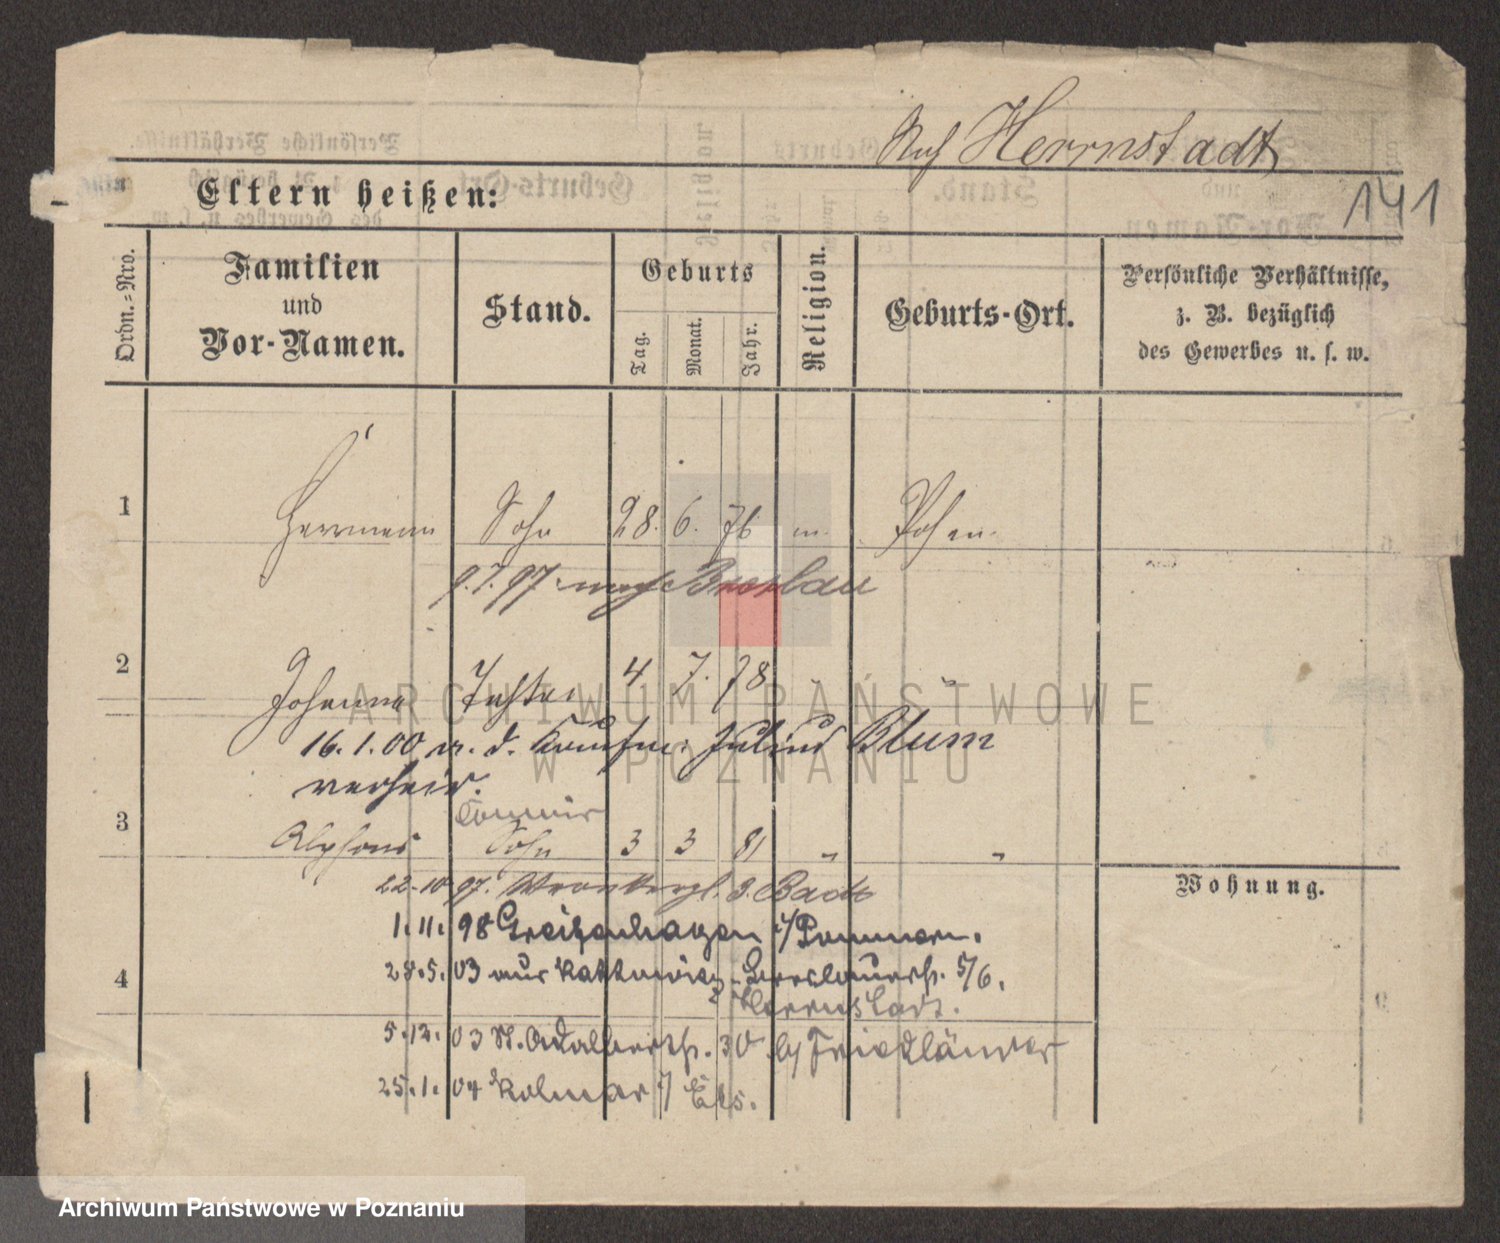 Herrnstadt
141
Eltern heißen:
Ordn.=Nro.
Familien
und
Vor-Namen.
Stand.
Geburts
Tag.
Monat.
Jahr.
Religion.
Geburts-Ort.
Persönliche Verhältnisse,
z. B. bezüglich
des Gewerbes u. s. w.
1 Herrmann Sohn 28. 6. 76 m. Posen
9.7.97 nach Breslau
2 Johanna Tochter 4 7. 78 " "
16.1.00 m. d. Kaufm. Julius Blum
verheir.
Commis
3 Alphons Sohn 3 3 81 " "
22.10.97.
1.11.98 Greifenhagen i/Pommern.
4
28.5.03 aus Kattowitz - Breslauerstr. 5/6.
Herrnstadt.
5.12.03 St. Adalbertstr. 30 b/ Friedländer
25.1.04 Kolmar i/ Els.
Wohnung.
ARCHIWUM PAŃSTWOWE
W POZNANIU
Archiwum Państwowe w Poznaniu